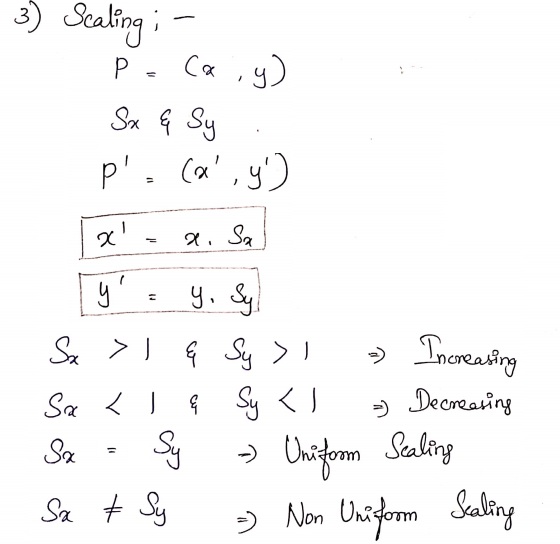 3) Scaling ; –
P = (x , y)
Sx & Sy
P' = (x' , y')
x' = x . Sx
y' = y . Sy
Sx > 1 & Sy > 1 => Increasing
Sx < 1 & Sy < 1 => Decreasing
Sx = Sy -> Uniform Scaling
Sx ≠ Sy => Non Uniform Scaling